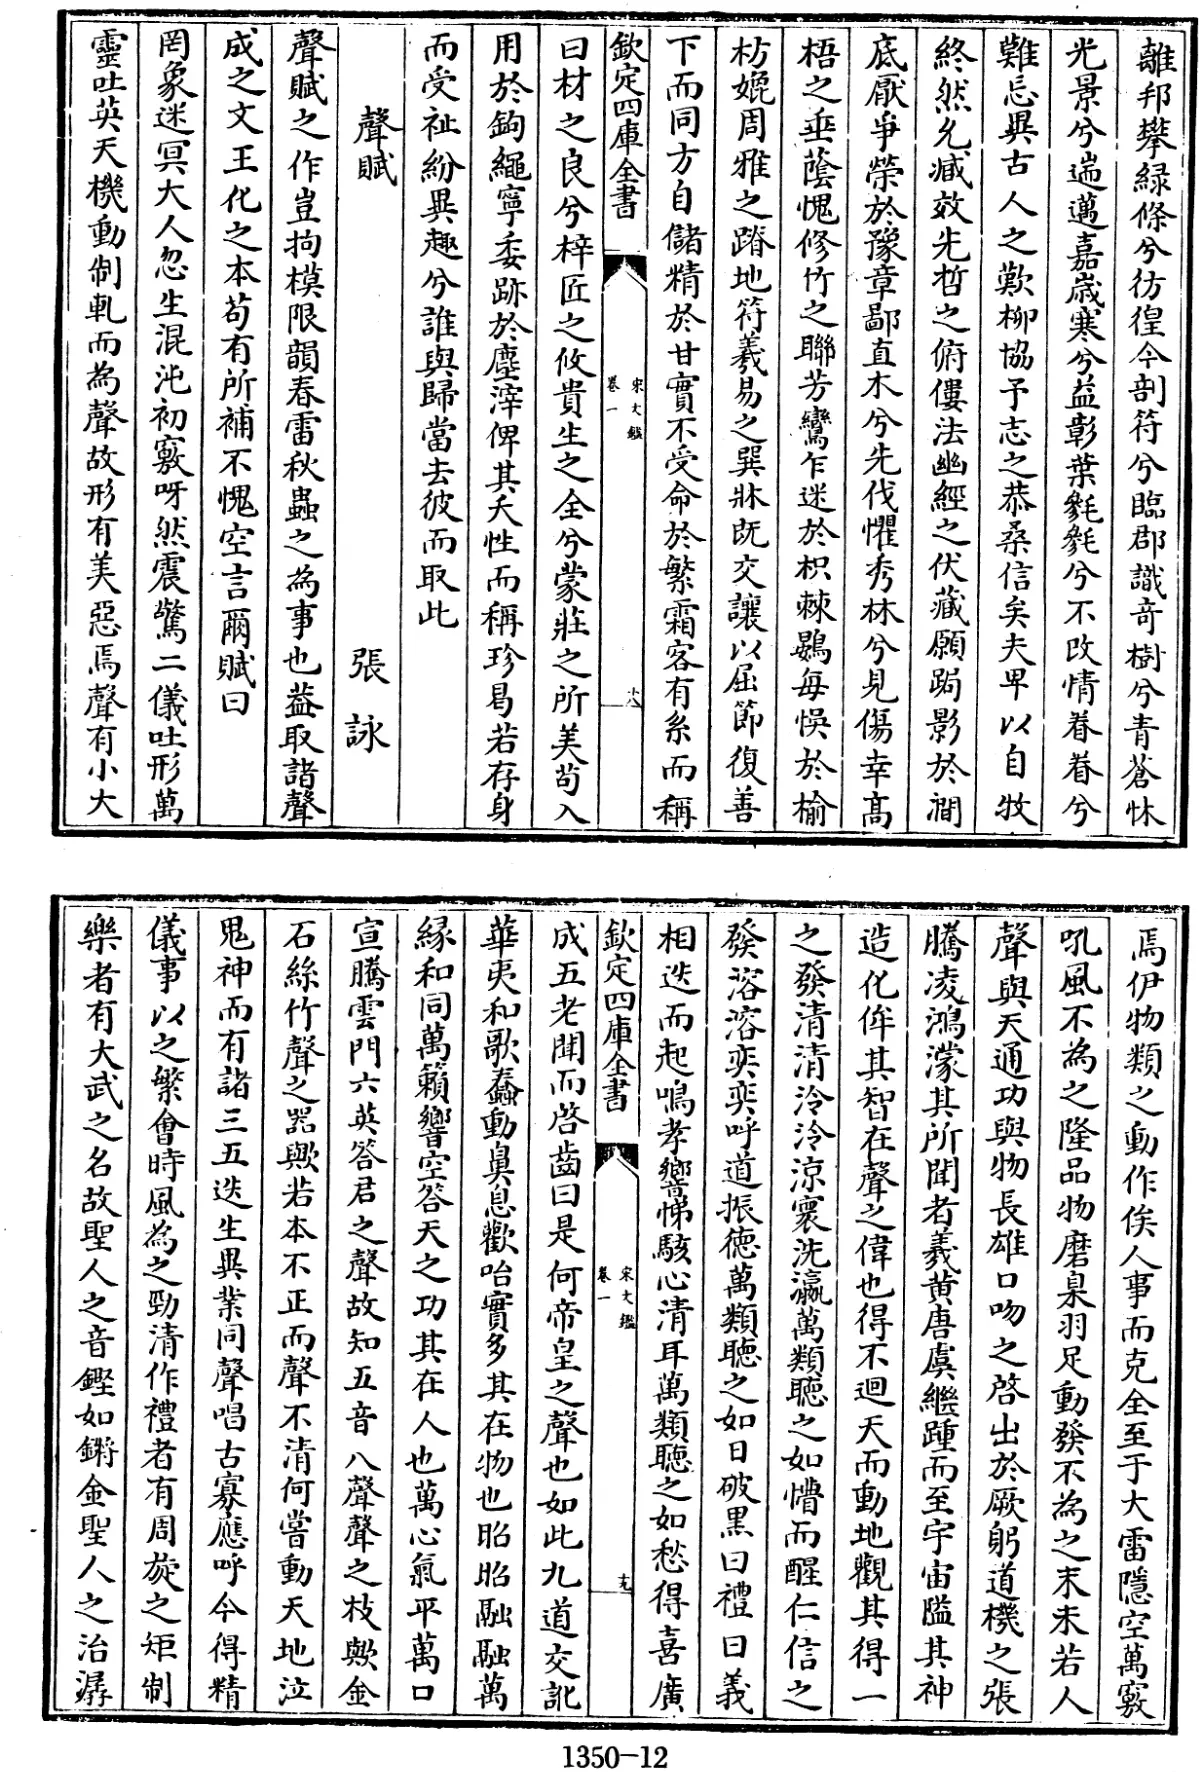 離邦攀緑條兮彷徨今剖符兮臨郡識竒樹兮青蒼怵
光景兮遄邁嘉嵗寒兮益彰葉毿毿兮不改情眷眷兮
難忘異古人之歎栁協予志之恭桑信矣夫卑以自牧
終然允臧效先哲之俯僂法幽經之伏藏願跼影於澗
底厭爭榮於豫章鄙直木兮先伐懼秀林兮見傷幸髙
梧之垂蔭愧修竹之聯芳鸞乍迷於枳棘鷃每悞於榆
枋媲周雅之蹐地符羲易之巽牀既交讓以屈節復善
下而同方自儲精於甘實不受命於繁霜客有系而稱
欽定四庫全書
宋文鑑
卷一
十八
曰材之良兮梓匠之攸貴生之全兮蒙莊之所美茍入
用於鈎繩寧委跡於塵滓俾其夭性而稱珍曷若存身
而受祉紛異趣兮誰與歸當去彼而取此
聲賦
張詠
聲賦之作豈拘模限韻春雷秋蟲之為事也葢取諸聲
成之文王化之本茍有所補不愧空言爾賦曰
罔象迷冥大人忽生混沌初竅呀然震驚二儀吐形萬
靈吐英天機動制軋而為聲故形有美惡焉聲有小大
焉伊物類之動作俟人事而克全至于大雷隱空萬竅
吼風不為之隆品物磨臬羽足動發不為之末未若人
聲與天通功與物長雄口吻之啓出於厥躬道機之張
騰凌鴻濛其所聞者羲黄唐虞繼踵而至宇宙隘其神
造化侔其智在聲之偉也得不迴天而動地觀其得一
之發清清泠泠涼寰洗瀛萬類聴之如懵而醒仁信之
發溶溶奕奕呼道振徳萬類聴之如日破黒曰禮曰義
相迭而起鳴孝響悌駭心清耳萬類聴之如愁得喜廣
欽定四庫全書
宋文鑑
卷一
十九
成五老聞而啓齒曰是何帝皇之聲也如此九道交訛
華夷和歌蠢動鼻息歡咍實多其在物也昭昭融融萬
縁和同萬籟響空答天之功其在人也萬心氣平萬口
宣騰雲門六英答君之聲故知五音八聲聲之枝歟金
石絲竹聲之器歟若本不正而聲不清何嘗動天地泣
鬼神而有諸三五迭生異業同聲唱古寡應呼今得精
儀事以之繁會時風為之勁清作禮者有周旋之矩制
樂者有大武之名故聖人之音鏗如鏘金聖人之治潺
1350-12